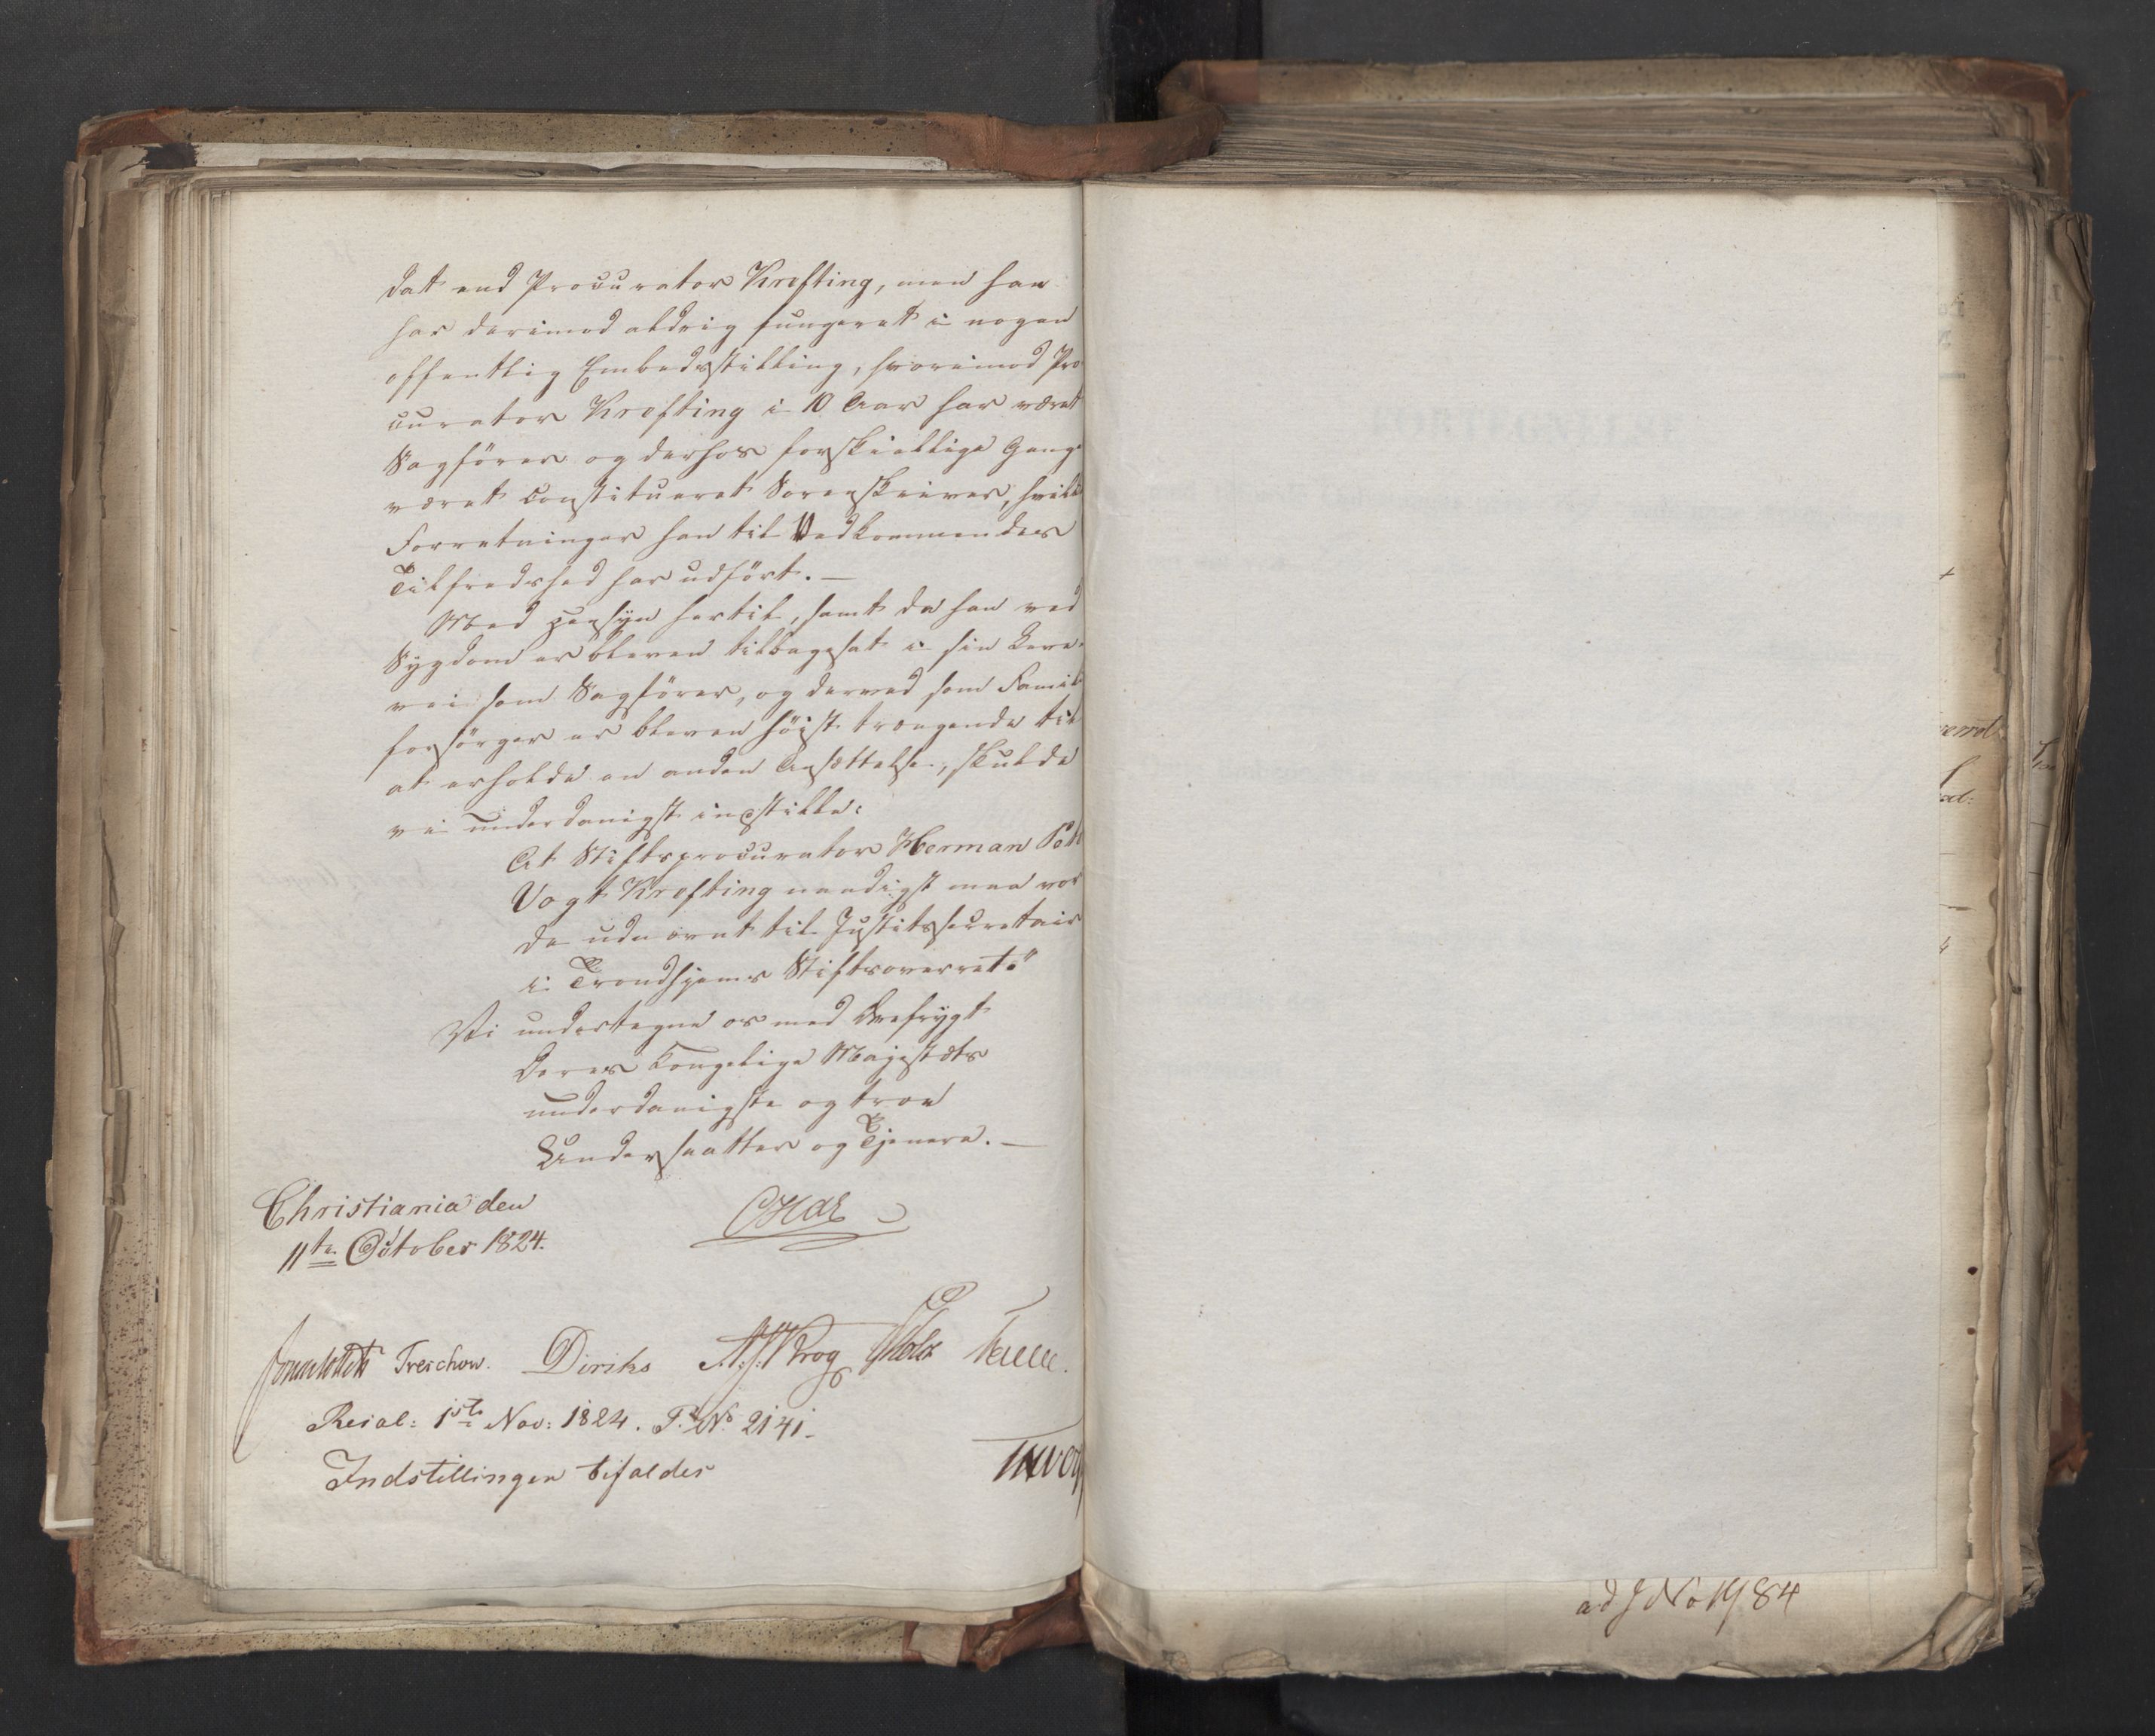 dat end Procurator Krefting, men han
har derimod aldrig fungeret i nogen
offentlig Embedsstilling, hvorimod Pro-
curator Krefting i 10 Aar har været
Sagförer og derhos forskiellige Gange
været constitueret Sorenskriver, hvilke
Forretninger han til Vedkommendes
Tilfredshed har udfört. —
Med Hensyn hertil, samt da han ved
Sygdom er bleven tilbagesat i sin Leve-
vei som Sagförer, og derved som Famili
forsörger er bleven höist trængende til
at erholde en anden Ansættelse, skulde
vi underdanigst indstille:
At Stiftsprocurator Herman
Vogt Krefting naadigst maa vor
de udnævnt til Justitssecretair
i Trondhjems Stiftsoverret."
Vi undertegne os med Ærefrygt
Deres Kongelige Majestæts
underdanigste og troe
Undersaatter og Tjenere. —
Christiania den
11te October 1824.
Treschow. Diriks Krog
Resol: 1ste Nov: 1824. P. No 2141.
Indstillingen bifaldes
ad J No 1984